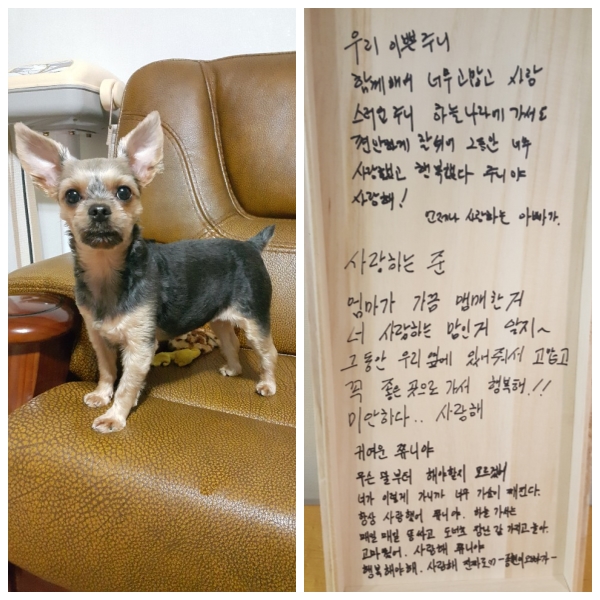 우리 이쁜 주니
함께해서 너무 고맙고 사랑
스러운 주니 하늘나라에 가서도
편안하게 잘 쉬어 그동안 너무
사랑했고 행복했다 주니야
사랑해!
언제나 사랑하는 아빠가.
사랑하는 준
엄마가 가끔 맴매한거
너 사랑하는 맘인거 알지~
그동안 우리 옆에 있어줘서 고맙고
꼭 좋은 곳으로 가서 행복해.!!
미안하다.. 사랑해
귀여운 쮸니야
무슨 말부터 해야할지 모르겠어
너가 이렇게 가니까 너무 가슴이 메인다.
항상 사랑했어 쮸니야. 하늘 가서는
매일 매일 똥싸고 도넛츠 장난감 가지고 놀아.
고마웠어. 사랑해 쮸니야
행복해야해. 사랑해 진짜로